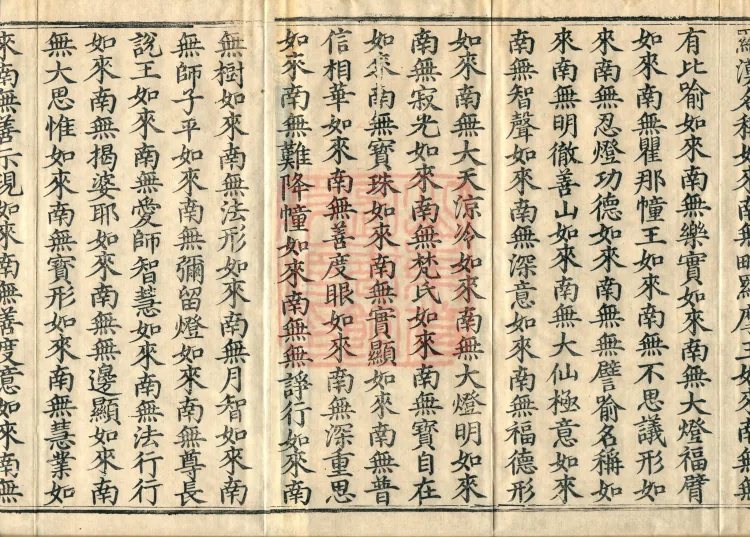 名稱如來南無毗羅
有比喻如來南無樂實如來南無大燈福臂
如來南無瞿那幢王如來南無不思議形如
來南無忍燈功德如來南無譬喻名稱如
來南無明徹善山如來南無大仙極意如來
南無智聲如來南無深意如來南無福德形
如來南無大天涼冷如來南無大燈明如來
南無寂光如來南無梵氏如來南無寶自在
如來南無寶珠如來南無實顯如來南無普
信相華如來南無善度眼如來南無深重思
如來南無難降幢如來南無無諍行如來南
無樹如來南無法形如來南無月智如來南
無師子平如來南無彌留燈如來南無尊長
說王如來南無愛師智慧如來南無法行行
如來南無揭婆耶如來南無無邊顯如來南
無大思惟如來南無寶形如來南無慧業如
來南無善示現如來南無善度意如來南無